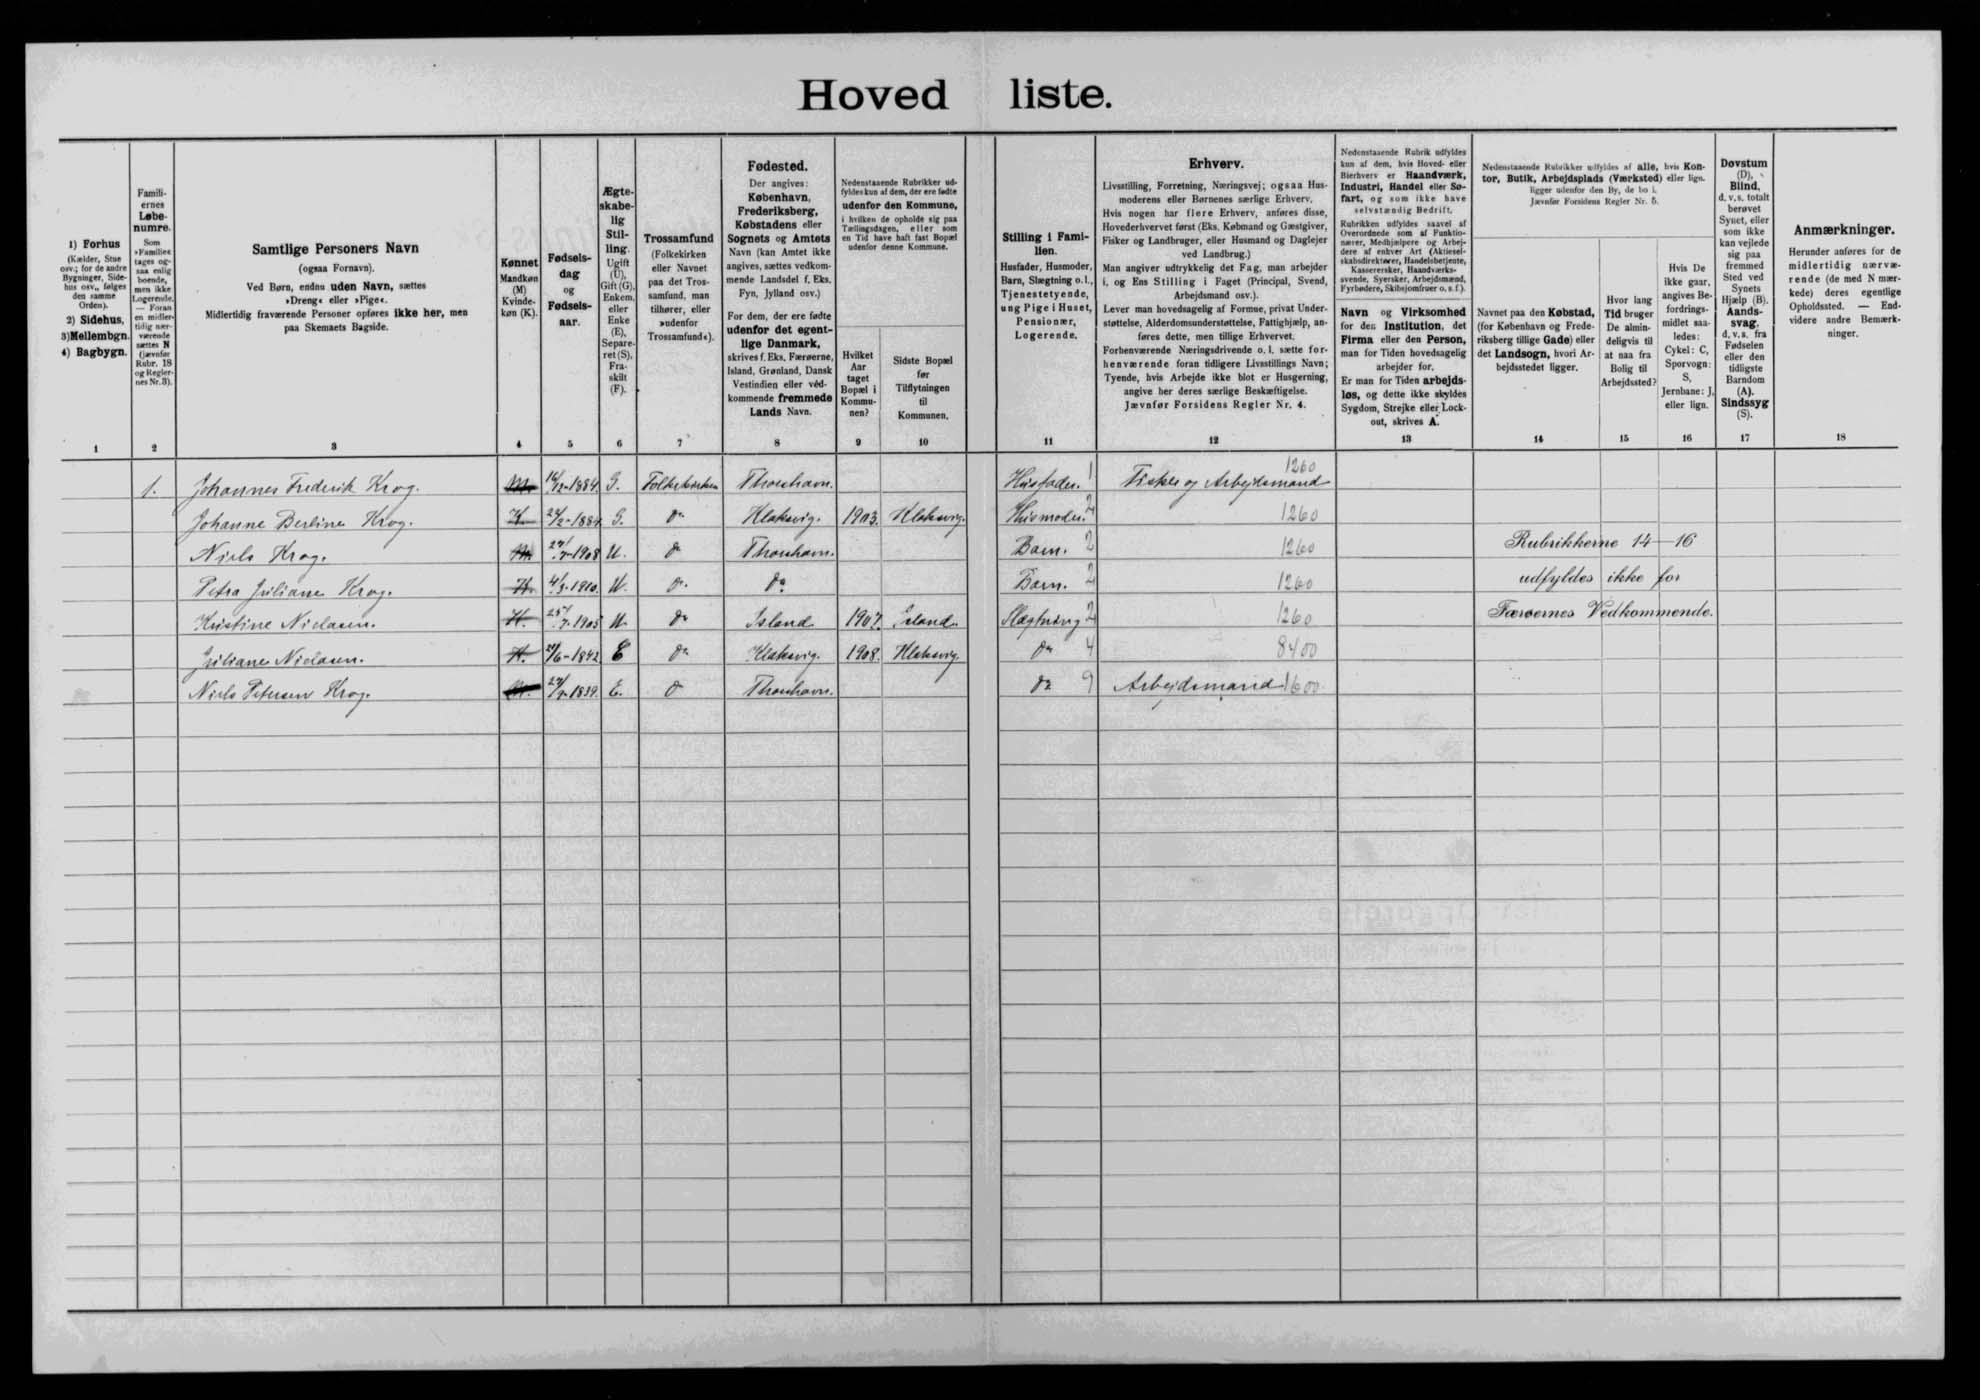 Hoved liste.
1) Forhus
(Kælder, Stue
osv.; for de andre
Bygninger, Side-
hus osv., følges
den samme
Orden).
2) Sidehus,
3) Mellembgn.
4) Bagbygn.
1
Famili-
ernes
Løbe-
numre.
Som
»Familie«
tages og-
saa enlig
boende,
men ikke
Logerende.
— Foran
en midler-
tidig nær-
værende
sættes N
(jævnfør
Rubr. 18
og Regler-
nes Nr. 3).
2
Samtlige Personers Navn
(ogsaa Fornavn).
Ved Børn, endnu uden Navn, sættes
»Dreng« eller »Pige«.
Midlertidig fraværende Personer opføres ikke her, men
paa Skemaets Bagside.
3
Kønnet
Mandkøn
(M)
Kvinde-
køn (K).
4
Fødsels-
dag
og
Fødsels-
aar.
5
Ægte-
skabe-
lig
Stil-
ling.
Ugift
(U),
Gift (G).
Enkem.
eller
Enke
(E),
Separe-
ret (S).
Fra-
skilt
(F).
6
Trossamfund
(Folkekirken
eller Navnet
paa det Tros-
samfund, man
tilhører, eller
»udenfor
Trossamfund«).
7
Fødested.
Der angives:
København,
Frederiksberg,
Købstadens eller
Sognets og Amtets
Navn (kan Amtet ikke
angives, sættes vedkom-
mende Landsdel f. Eks.
Fyn, Jylland osv.)
For dem, der ere fødte
udenfor det egent-
lige Danmark,
skrives f. Eks. Færøerne,
Island, Grønland, Dansk
Vestindien eller ved-
kommende fremmede
Lands Navn.
8
Nedenstaaende Rubrikker ud-
fyldes kun af dem, der ere fødte
udenfor den Kommune,
i hvilken de opholde sig paa
Tællingsdagen, eller som
en Tid have haft fast Bopæl
udenfor denne Kommune.
Hvilket
Aar
taget
Bopæl i
Kommu-
nen?
9
Sidste Bopæl
før
Tilflytningen
til
Kommunen.
10
Stilling i Fami-
lien.
Husfader, Husmoder,
Barn, Slægtning o. l.,
Tjenestetyende,
ung Pige i Huset,
Pensionær,
Logerende.
11
Erhverv.
Livsstilling, Forretning, Næringsvej; ogsaa Hus-
moderens eller Børnenes særlige Erhverv.
Hvis nogen har flere Erhverv, anføres disse,
Hovederhvervet først (Eks. Købmand og Gæstgiver,
Fisker og Landbruger, eller Husmand og Daglejer
ved Landbrug.)
Man angiver udtrykkelig det Fag, man arbejder
i, og Ens Stilling i Faget (Principal, Svend,
Arbejdsmand osv.).
Lever man hovedsagelig af Formue, privat Under-
støttelse, Alderdomsunderstøttelse, Fattighjælp, an-
føres dette, men tillige Erhvervet.
Forhenværende Næringsdrivende o. l. sætte for-
henværende foran tidligere Livsstillings Navn;
Tyende, hvis Arbejde ikke blot er Husgerning,
angive her deres særlige Beskæftigelse.
Jævnfør Forsidens Regler Nr. 4.
12
Nedenstaaende Rubrik udfyldes
kun af dem, hvis Hoved- eller
Bierhverv er Haandværk,
Industri, Handel eller Sø-
fart, og som ikke have
selvstændig Bedrift.
Rubrikken udfyldes saavel af
Overordnede som af Funktio-
nærer, Medhjælpere og Arbej-
dere af enhver Art (Aktiesel-
skabsdirektører, Handelsbetjente,
Kassererersker, Haandværks-
svende, Syersker, Arbejdsmænd,
Fyrbødere, Skibsjomfruer o. s. f.).
Navn og Virksomhed
for den Institution, det
Firma eller den Person,
man for Tiden hovedsagelig
arbejder for.
Er man for Tiden arbejds-
løs, og dette ikke skyldes
Sygdom, Strejke eller Lock-
out, skrives A.
13
Nedenstaaende Rubrikker udfyldes af alle, hvis Kon-
tor, Butik, Arbejdsplads (Værksted) eller lign.
ligger udenfor den By, de bo i.
Jævnfør Forsidens Regler Nr. 5.
Navnet paa den Købstad,
(for København og Frede-
riksberg tillige Gade) eller
det Landsogn, hvori Ar-
bejdsstedet ligger.
14
Hvor lang
Tid bruger
De almin-
deligvis til
at naa fra
Bolig til
Arbejdssted?
15
Hvis De
ikke gaar,
angives Be-
fordrings-
midlet saa-
ledes:
Cykel: C,
Sporvogn:
S,
Jernbane: J,
eller lign.
16
Døvstum
(D),
Blind,
d. v. s. totalt
berøvet
Synet, eller
som ikke
kan vejlede
sig paa
fremmed
Sted ved
Synets
Hjælp (B).
Aands-
svag,
d. v. s. fra
Fødselen
eller den
tidligste
Barndom
(A).
Sindssyg
(S).
17
Anmærkninger.
Herunder anføres for de
midlertidig nærvæ-
rende (de med N mær-
kede) deres egentlige
Opholdssted. — End-
videre andre Bemærk-
ninger.
18
1. Johannes Frederik Krog. M. 16/12-1884. G. Folkekirken Thorshavn. Husfader. 1 Fisker og Arbejdsmand 1260
Johanne Berline Krog. K. G. do Klaksvig. 1903. Klaksvig. Husmoder. 2 1260
Niels Krog. M. 1908 U. do Thorshavn. Barn. 2 1260 Rubrikkerne 14—16
Petra Juliane Krog. K. 1910. U. do. do Barn. 2 1260 udfyldes ikke for
Kristine Niclasen. K. 1905 U. do Island 1907. Island. Slægtning 2 1260 Færøernes Vedkommende.
Juliane Niclasen. K. 1842. E do Klaksvig. 1908. Klaksvig. do 4 8400
Niels Petersen Krog. M. 1839. E. do Thorshavn. do 9 Arbejdsmand 1600